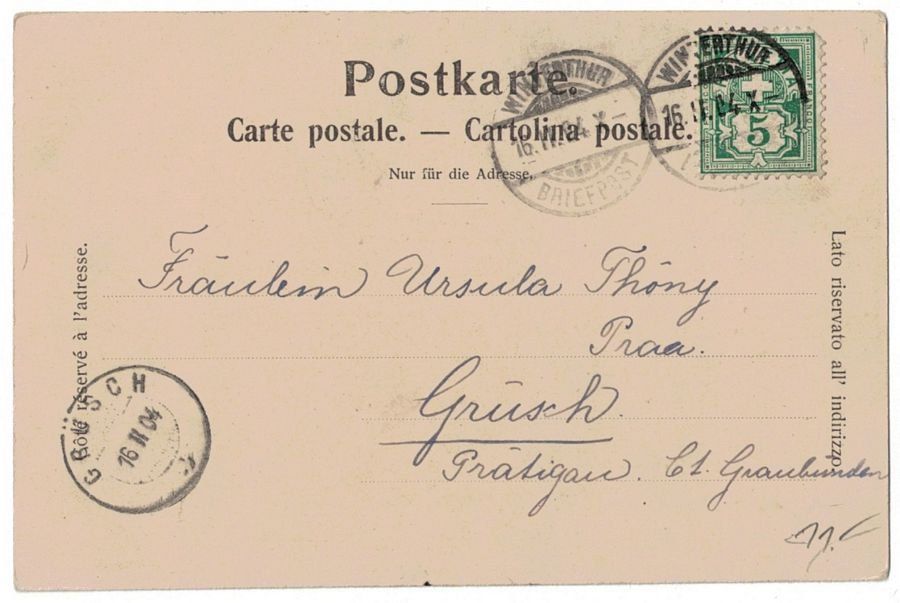 Postkarte.
Carte postale. — Cartolina postale.
Nur für die Adresse.
WINTERTHUR
16.II.04.X–
BRIEFPOST
WINTERTHUR
16.II.04.X–
5
Côté réservé à l'adresse.
Lato riservato all' indirizzo.
Fräulein Ursula Thöny
Praa.
Grüsch.
Prätigau. Ct. Graubünden
GRÜSCH
16 II 04